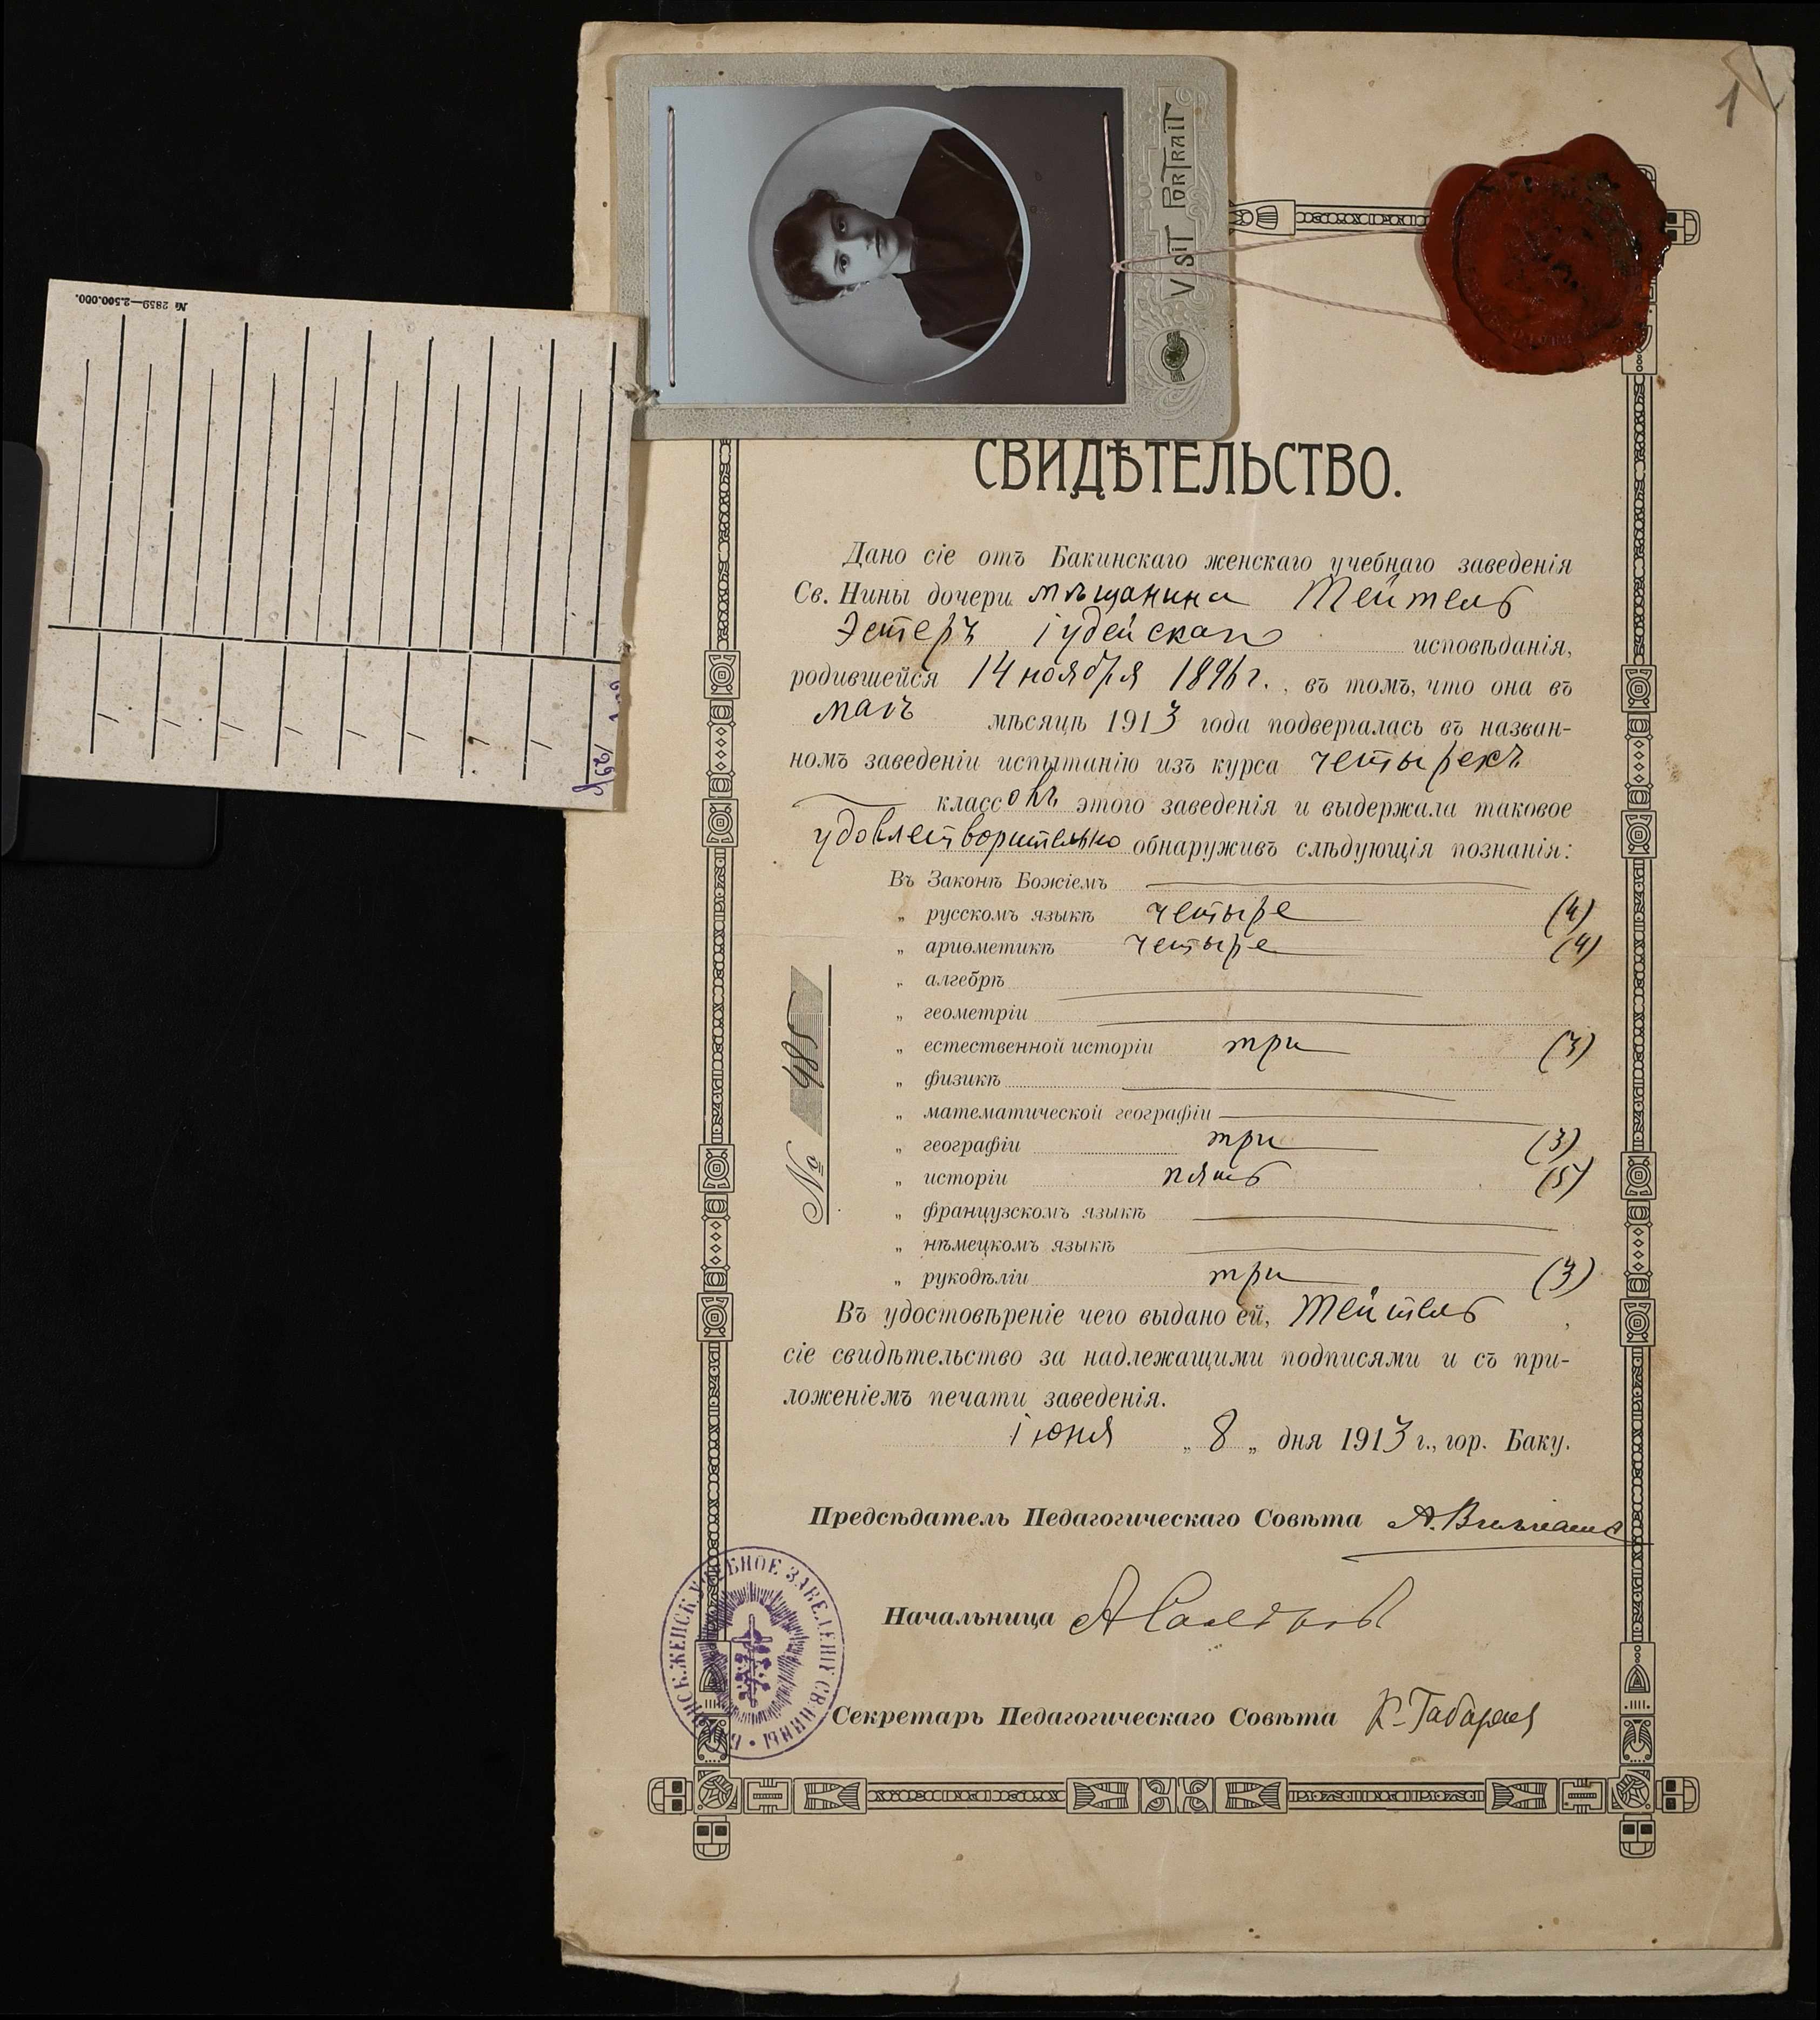 1
VISIT PORTRAIT
№ 2859—2.500.000.
СВИДѢТЕЛЬСТВО.
Дано сіе отъ Бакинскаго женскаго учебнаго заведенія
Св. Нины дочери мѣщанина Тейтель
Эстеръ іудейскаго исповѣданія,
родившейся 14 ноября 1896 г., въ томъ, что она въ
маѣ мѣсяцѣ 1913 года подвергалась въ назван-
номъ заведеніи испытанію изъ курса четырехъ
классовъ этого заведенія и выдержала таковое
удовлетворительно обнаруживъ слѣдующія познанія:
Въ Законѣ Божіемъ
„ русскомъ языкѣ четыре (4)
„ ариѳметикѣ четыре (4)
„ алгебрѣ
„ геометріи
„ естественной исторіи три (3)
„ физикѣ
„ математической географіи
„ географіи три (3)
„ исторіи пять (5)
„ французскомъ языкѣ
„ нѣмецкомъ языкѣ
„ рукодѣліи три (3)
№ 485
Въ удостовѣреніе чего выдано ей, Тейтель,
сіе свидѣтельство за надлежащими подписями и съ при-
ложеніемъ печати заведенія.
іюня „ 8 „ дня 1913 г., гор. Баку.
Предсѣдатель Педагогическаго Совѣта А.
Начальница
Секретарь Педагогическаго Совѣта
БАКИНСК. ЖЕНСК. УЧЕБНОЕ ЗАВЕДЕНІЕ СВ. НИНЫ